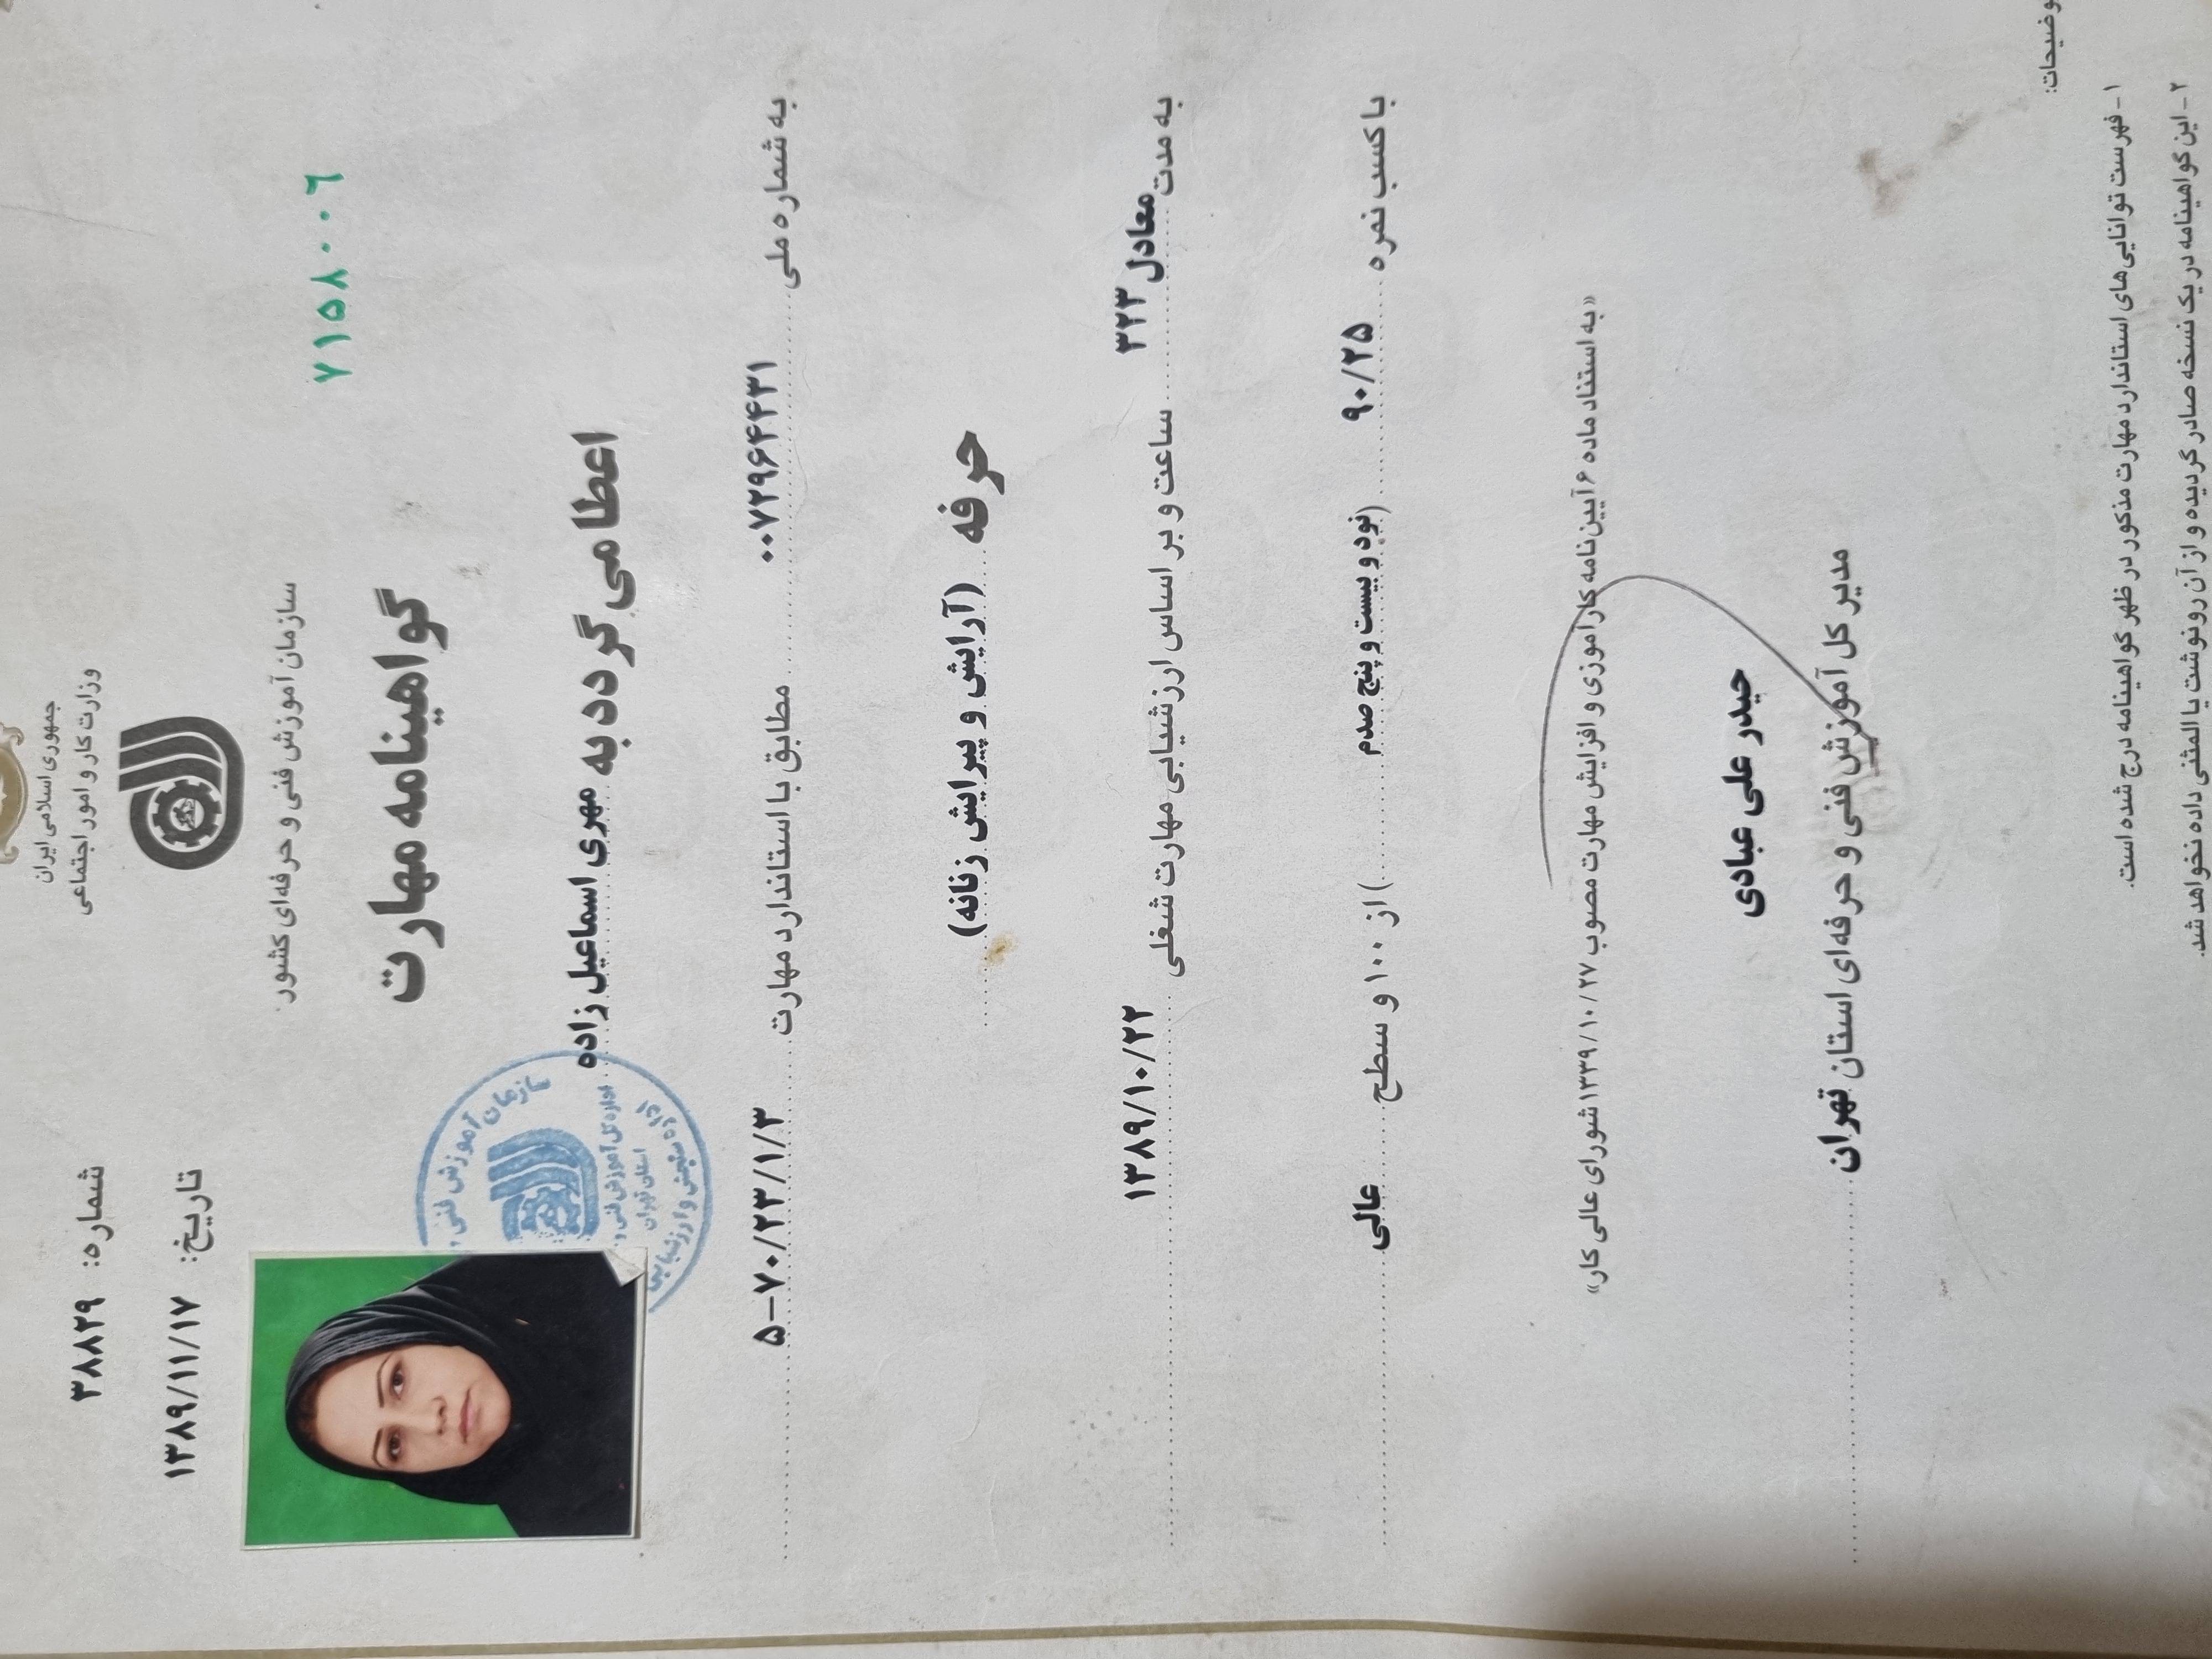 جمهوری اسلامی ایران
وزارت کار و امور اجتماعی
سازمان آموزش فنی و حرفه‌ای کشور
شماره: ۳۸۸۲۹
تاریخ: ۱۳۸۹/۱۱/۱۷
۷۱۵۸۰۰۶
گواهینامه مهارت
اعطا می گردد به مهری اسماعیل زاده
به شماره ملی ۰۰۷۲۹۶۴۴۳۱ مطابق با استاندارد مهارت ۵-۷۰/۲۳/۱/۳
حرفه (آرایش و پیرایش زنانه)
به مدت معادل ۳۲۳ ساعت و بر اساس ارزشیابی مهارت شغلی ۱۳۸۹/۱۰/۲۲
با کسب نمره ۹۰/۲۵ (نود و بیست و پنج صدم) از ۱۰۰ و سطح عالی
«به استناد ماده ۶ آیین‌نامه کارآموزی و افزایش مهارت مصوب ۱۳۳۹/۱۰/۲۷ شورای عالی کار»
حیدر علی عبادی
مدیر کل آموزش فنی و حرفه‌ای استان تهران
سازمان آموزش فنی و
اداره کل آموزش فنی و
استان تهران
سنجش و ارزشیابی
توضیحات:
۱- فهرست توانایی‌های استاندارد مهارت مذکور در ظهر گواهینامه درج شده است.
۲- این گواهینامه در یک نسخه صادر گردیده و از آن رونوشت یا المثنی داده نخواهد شد.